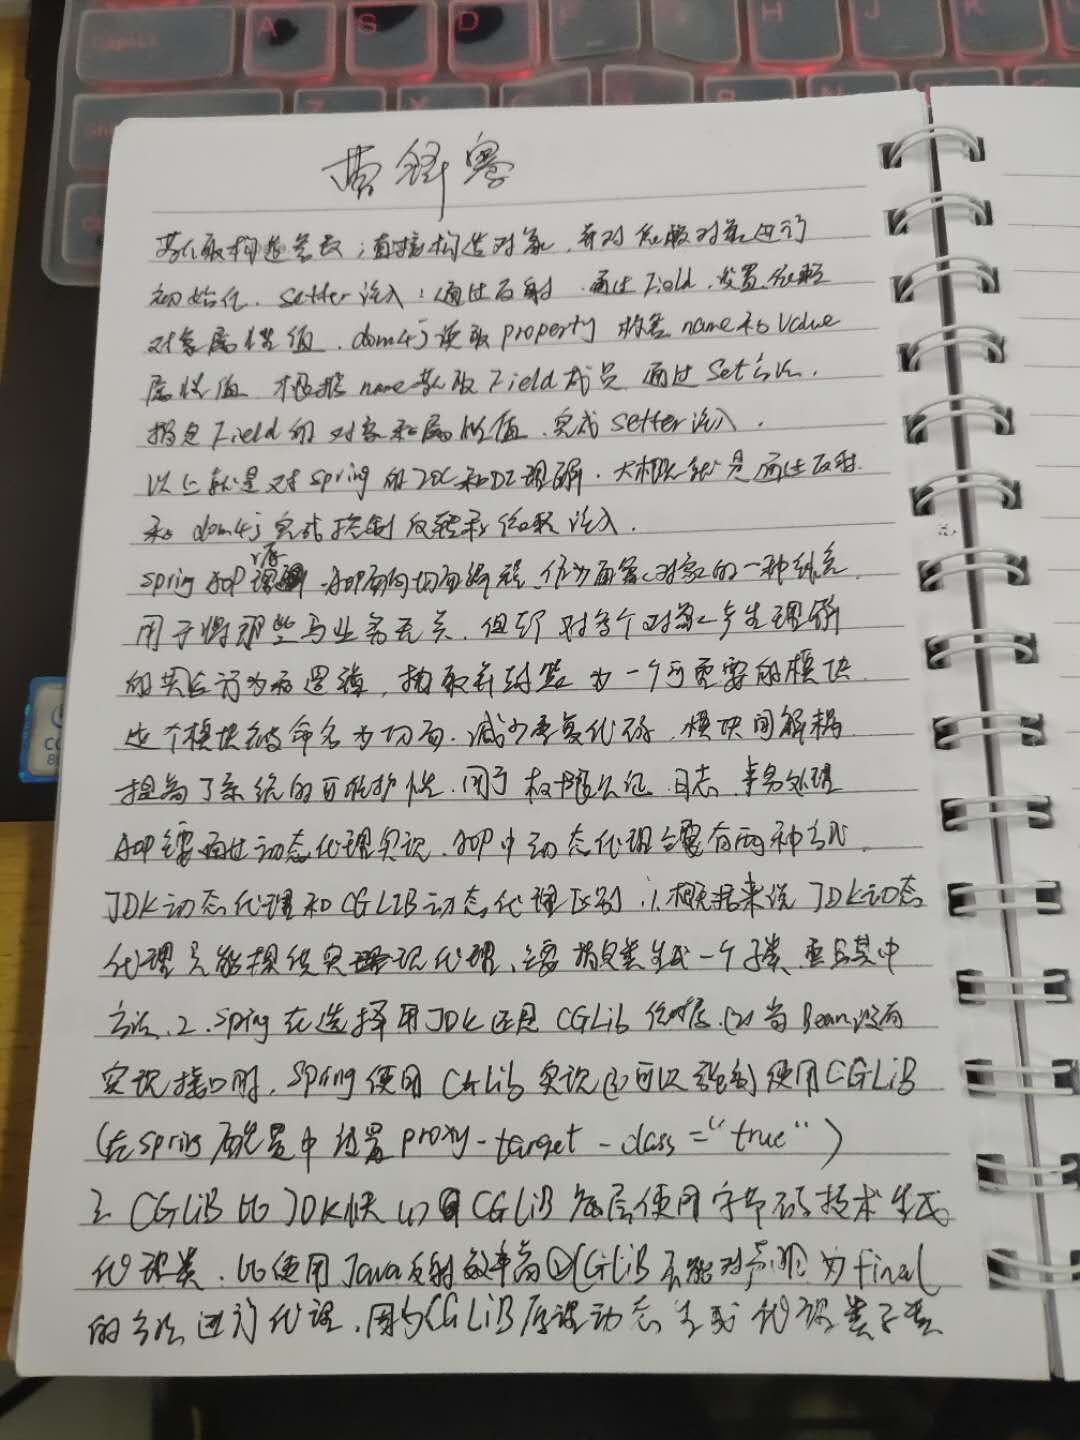 A S D F G H J K
获取构造参数；直接构造对象，并对依赖对象进行
初始化．setter注入：通过反射．通过Field．设置依赖
对象属性值．dom4j读取property标签name和value
属性值 根据name获取Field成员 通过Set方法．
指定Field的对象和属性值．完成setter注入．
以上就是对spring的IOC和DI理解．大概就是通过反射
和dom4j完成控制反转和依赖注入．
spring AOP 原理 AOP面向切面编程．作为面向对象的一种补充
用于将那些与业务无关．但却对多个对象产生理解
的共公行为和逻辑，抽取并封装为一个可重要的模块
这个模块被命名为切面．减少重复代码．模块间解耦
提高了系统的可维护性．用于权限认证 日志 事务处理
AOP主要通过动态代理实现．AOP中动态代理主要有两种方式．
JDK动态代理和CGLIB动态代理区别．1．概括来说JDK动态
代理只能提供实现代理．主要指定类生成一个子类．重写其中
方法．2．Spring在选择用JDK还是CGLib 当Bean没有
实现接口时．Spring使用CGLib实现 可以强制使用CGLiB
(在spring配置中设置proxy-target-class="true")
3 CGLiB比JDK快 (1) CGLiB底层使用字节码技术生成
代理类．比使用Java反射效率高 ②CGLiB不能对声明为final
的方法进行代理．因为CGLiB原理动态生成代理类子类